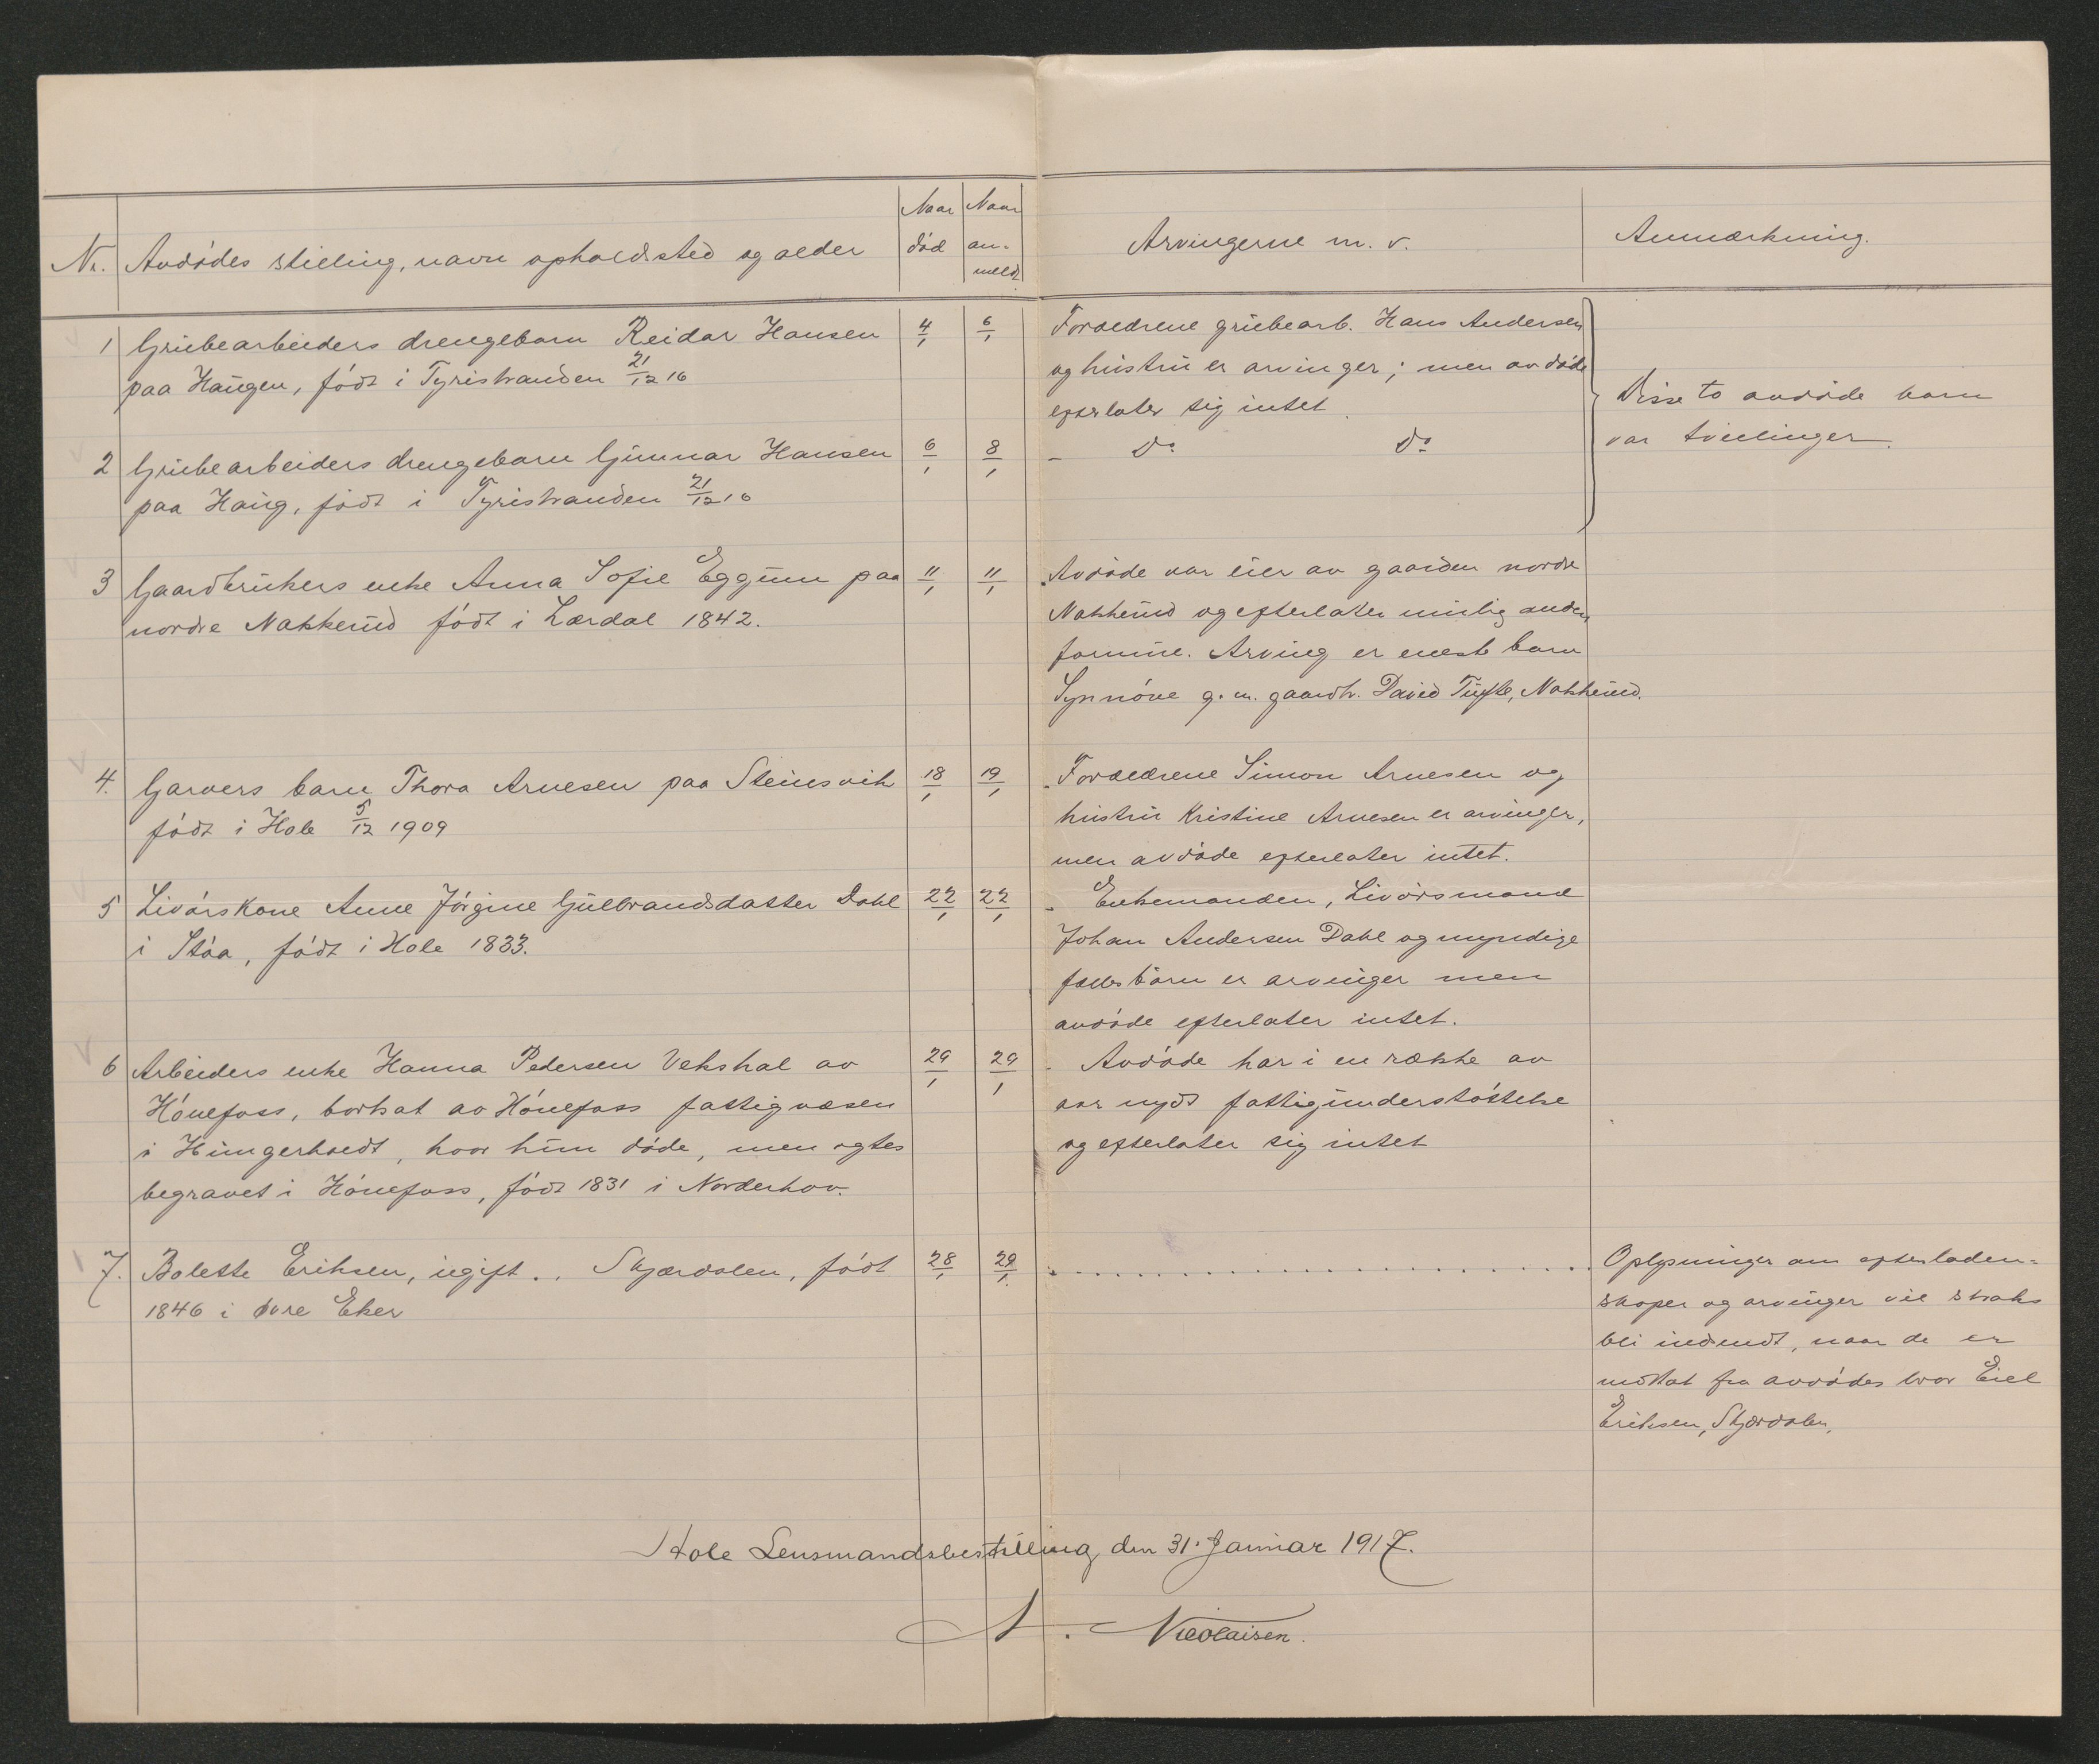 Nr. Avdødes stilling, navn opholdssted og alder
Naar død
Naar an-
meldt
Arvingerne m. v.
Anmærkning.
1 Grubearbeiders drengebarn Reidar Hansen 4/1 6/1
paa Haugen, født i Tyristranden 21/12 16
Forældrene grubearb. Hans Andersen
og hustru er arvinger; men avdøde
efterlater sig intet.
Disse to avdøde barn
var tvillinger.
2 Grubearbeiders drengebarn Gunnar Hansen 6/1 8/1
paa Haug, født i Tyristranden 21/12 16
- Do Do
3 Gaardbrukers enke Anna Sofie Eggum paa 11/1 11/1
nordre Nakkerud født i Lærdal 1842.
Avdøde var eier av gaarden nordre
Nakkerud og efterlater mulig anden
formue. Arving er eneste barn
Synnøve g. m. gaardb. David Tufte, Nakkerud.
4. Garvers barn Thora Arnesen paa Steinsvik 18/1 19/1
født i Hole 5/12 1909
Forældrene Simon Arnesen og
hustru Kristine Arnesen er arvinger,
men avdøde efterlater intet.
5 Livørskone Anne Jørgine Gulbrandsdatter Dahl 22/1 22/1
i Støa, født i Hole 1833.
Enkemanden, Livørsmand
Johan Andersen Dahl og myndige
fællesbørn er arvinger men
avdøde efterlater intet.
6 Arbeiders enke Hanna Pedersen Vekshal av 29/1 29/1
Hønefoss, bortsat av Hønefoss fattigvæsen
i Hungerholdt, hvor hun døde, men agtes
begravet i Hønefoss, født 1831 i Norderhov.
Avdøde har i en række av
aar nydt fattigunderstøttelse
og efterlater sig intet
7. Bolette Eriksen, ugift.. Skjærdalen, født 28/1 29/1
1846 i Øvre Eker
Oplysninger om efterladen-
skaper og arvinger vil straks
bli indsendt, naar de er
mottat fra avdødes bror Eiel
Eriksen, Skjærdalen.
Hole Lensmandsbestilling, den 31. Januar 1917.
A. Nicolaisen.